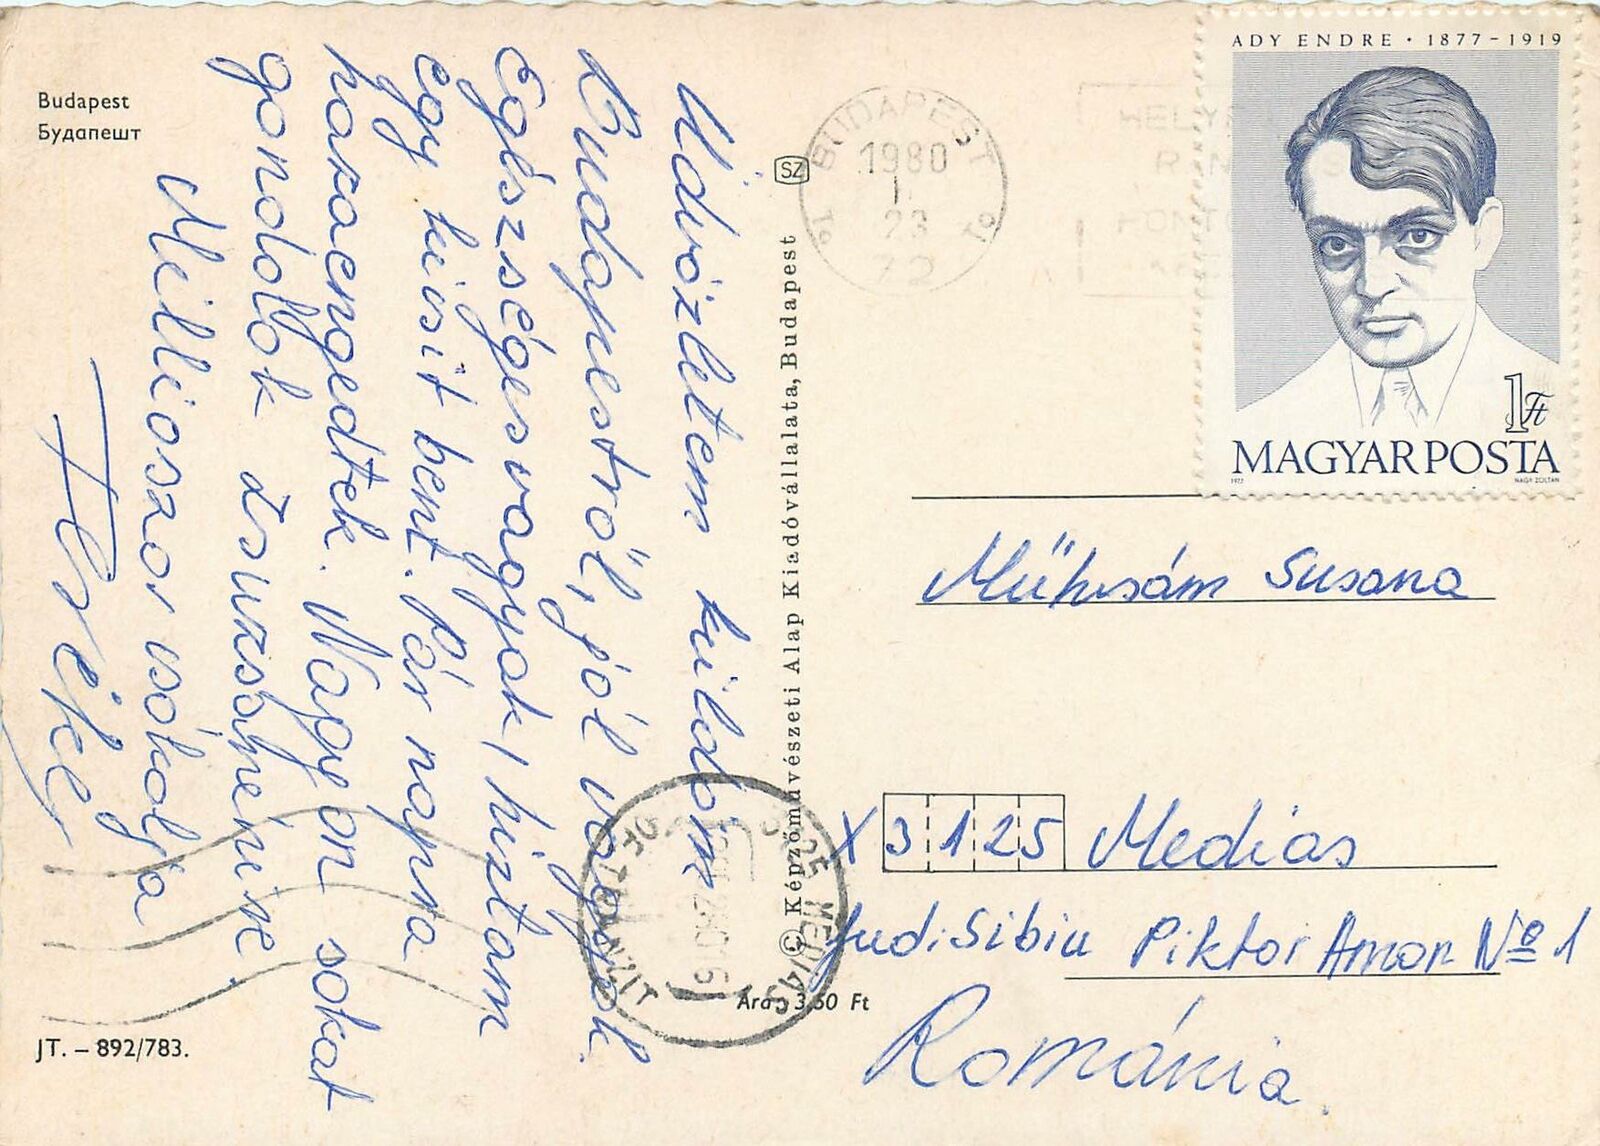 Budapest
Будапешт
Üdvözletem küldöm
Budapestről, jól vagyok.
Egészséges vagyok, híztam
egy kicsit bent. Pár napra
hazaengedtek. Nagyon sokat
gondolok Zsuzsánénire.
Milliószor csókolja
JT. – 892/783.
SZ
© Képzőművészeti Alap Kiadóvállalata, Budapest
Ára: 3,50 Ft
BUDAPEST
1980
I.
23
72
ADY ENDRE · 1877 – 1919
1 Ft
MAGYAR POSTA
1977
NAGY ZOLTÁN
Mühsám Susana
X 3125 Medias
Jud. Sibiu Piktor Aman № 1
Románia.
MEDIAȘ
TRANZIT